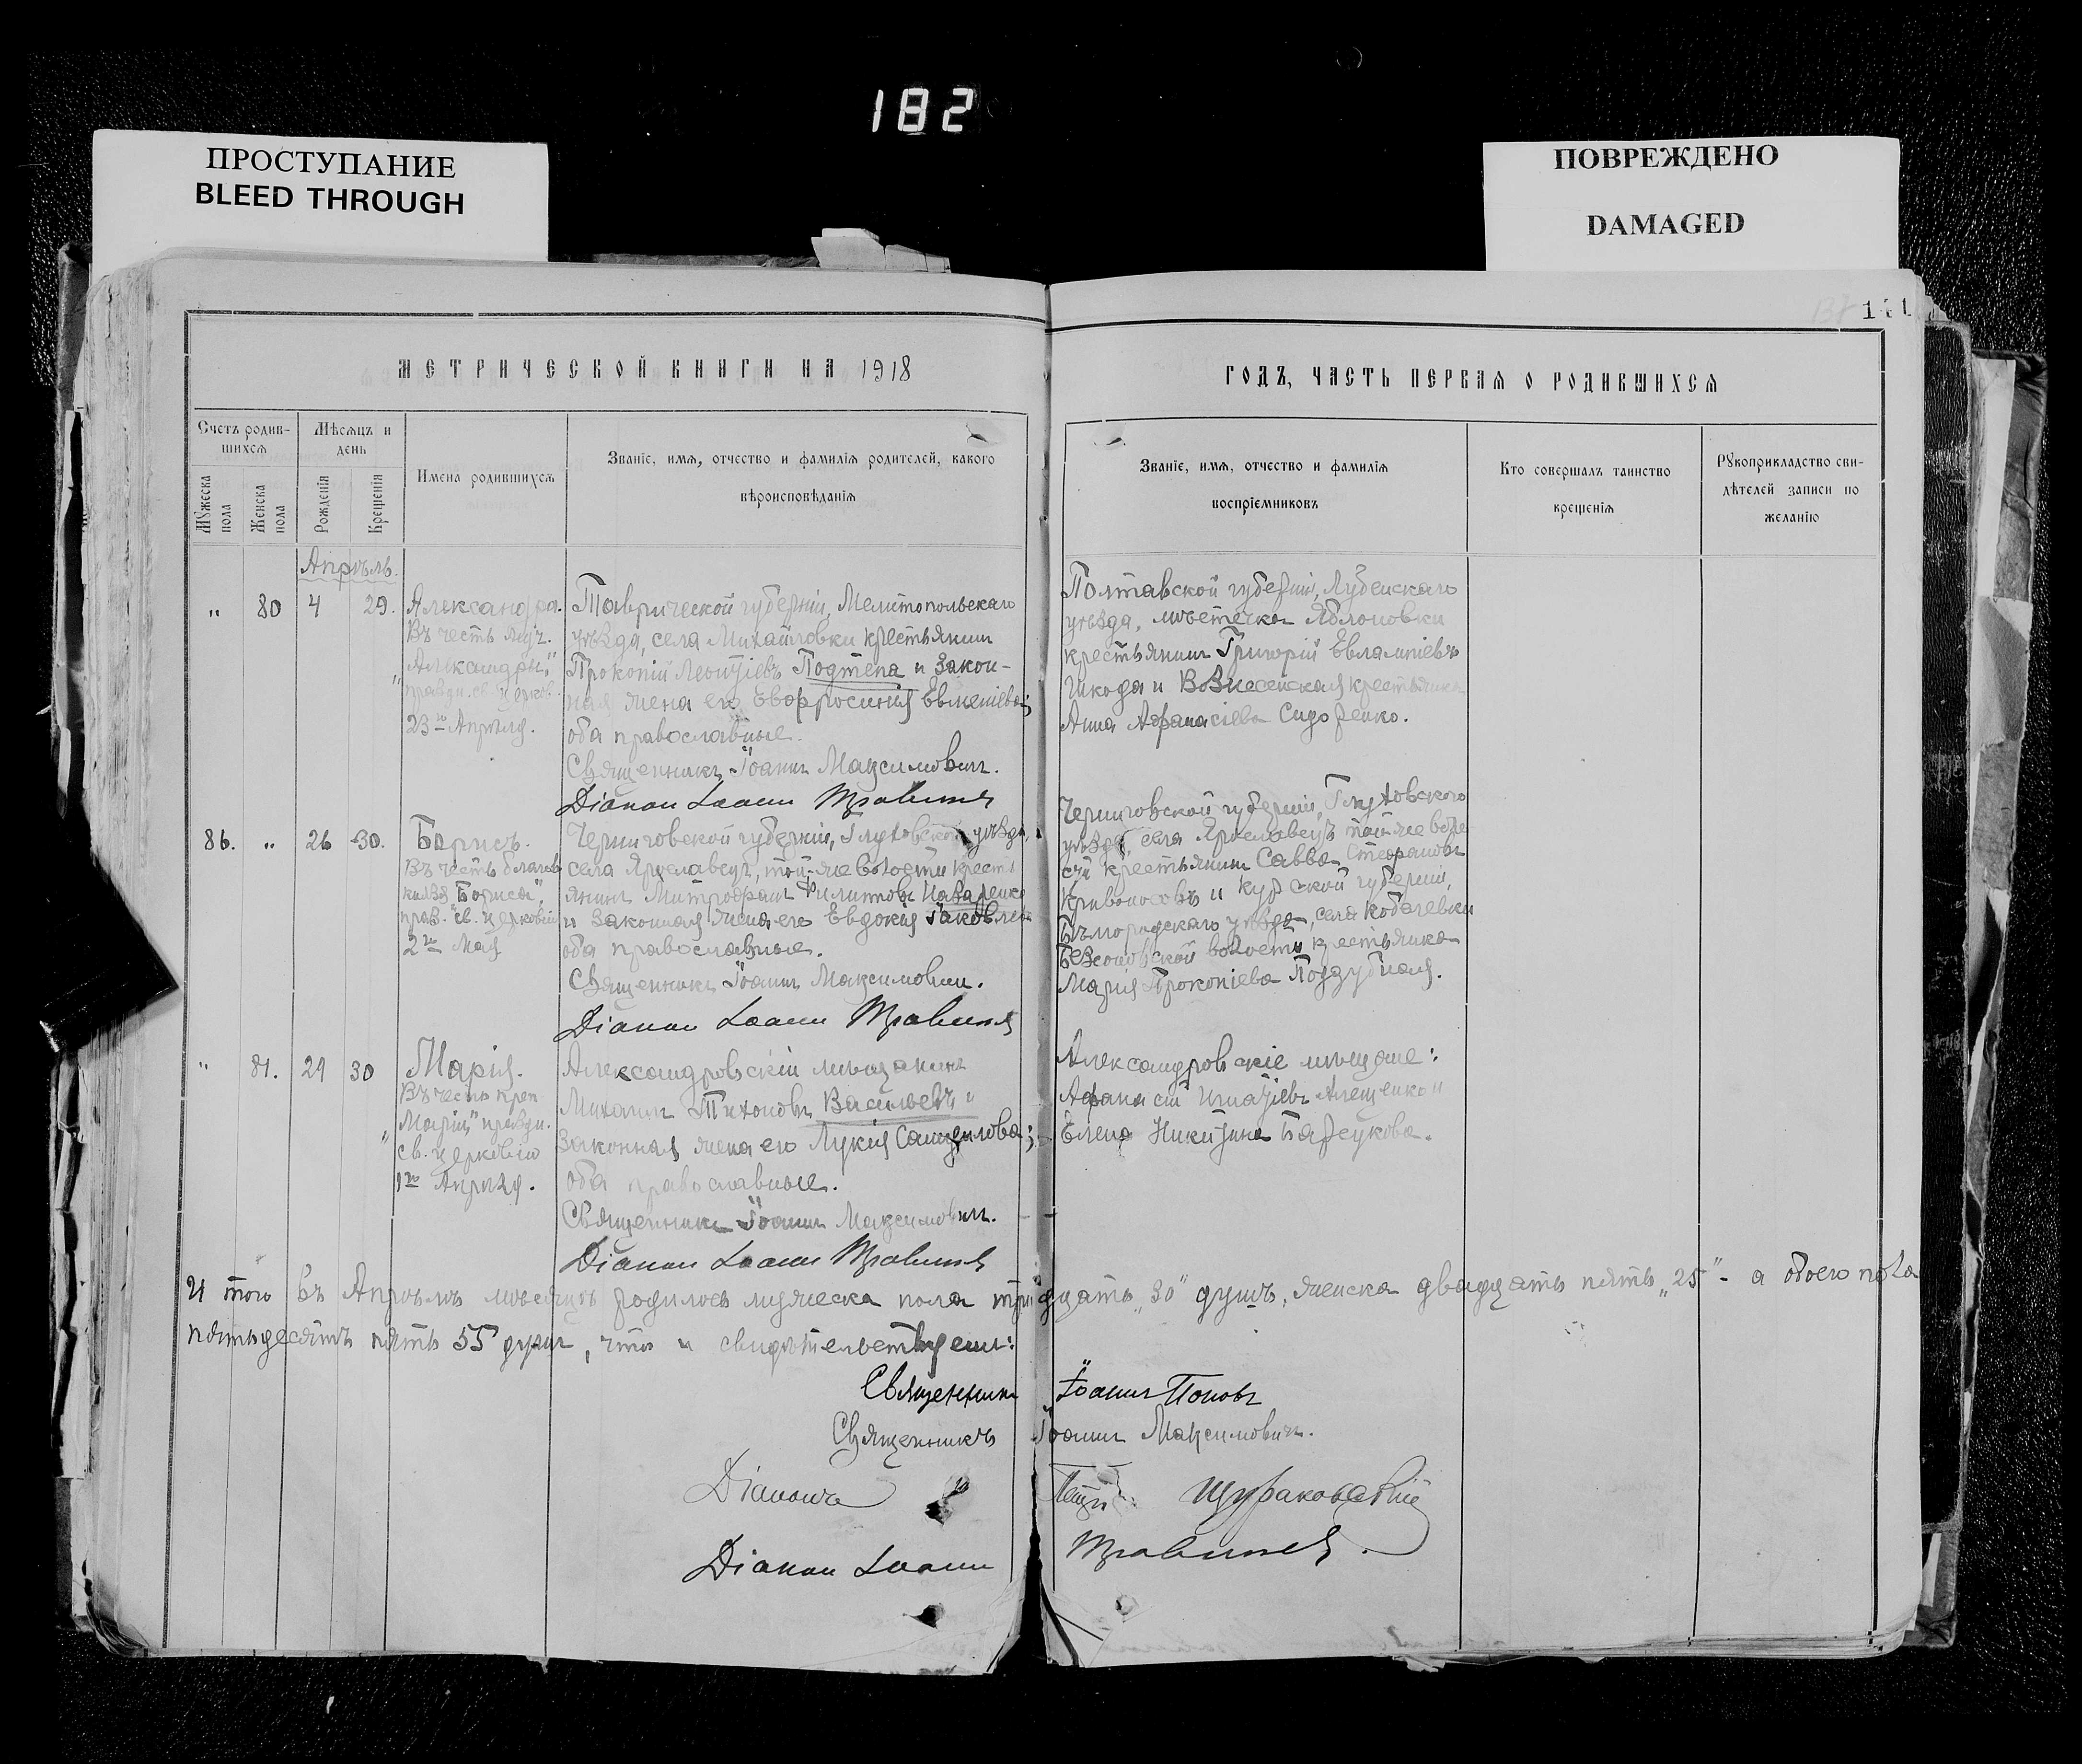 182
ПРОСТУПАНИЕ
BLEED THROUGH
ПОВРЕЖДЕНО
DAMAGED
МЕТРИЧЕСКОЙ КНИГИ НА 1918
ГОДЪ, ЧАСТЬ ПЕРВАЯ О РОДИВШИХСЯ
Счетъ родив-
шихся
Мѣсяцъ и
день
Мужеска
пола
Женска
пола
Рожденія
Крещенія
Имена родившихся
Званіе, имя, отчество и фамилія родителей, какого
вѣроисповѣданія
Званіе, имя, отчество и фамилія
воспріемниковъ
Кто совершалъ таинство
крещенія
Рукоприкладство сви-
дѣтелей записи по
желанію
Апрѣль.
" 80 4 29.
Александра.
Въ честь муч.
"Александры,"
праздн. св. церков.
23го Апрѣля.
Таврической губерніи, Мелитопольскаго
уѣзда, села Михайловки крестьянин
Прокопій Леонтіевъ Подтепа и закон-
ная жена его Евфросинія Евменіева;
оба православные.
Священникъ Іоаннъ Максимович.
Діакон Іоанн
Полтавской губерніи, Лубенскаго
уѣзда, мѣстечка Яблоновки
крестьянин Григорій Евлампіевъ
Шкода и Вознесенская крестьянка
Анна Афанасіева Сидоренко.
86. " 26 30.
Борисъ.
Въ честь благов.
князя "Бориса",
праз. св. церковію
2го Мая
Черниговской губерніи, Глуховской уѣзда,
села Ярославец, той-же волости крестъ
янин Митрофан Филиппов Назаренко
и законная жена его Евдокія Іаковлева
оба православные.
Священникъ Іоаннъ Максимович.
Діакон Іоанн
Черниговской губерніи, Глуховского
уѣзда, села Ярославецъ той-же воло-
сти крестьянин Савва Стефанов
Кривоносовъ и Курской губерніи,
Бѣлгородскаго уѣзда, села
Бессоновской волости крестьянка
Марія Прокопіева Поддубная.
" 81. 29 30
Марія.
Въ честь преп
"Маріи" праздн.
св. церковію
1го Апрѣля.
Александровскій мѣщанинъ
Михаилъ Тихоновъ Васильевъ и
законная жена его Лукія Самуилова;
оба православные.
Священникъ Іоаннъ Максимович.
Діакон Іоанн
Александровскіе мѣщане:
Афанасій Игнатіевъ Алещенко и
Елена Никитина
Итого въ Апрѣлѣ мѣсяцѣ родилось мужеска пола тридцать "30" душъ, женска двадцать пять "25" - а обоего пола
пятьдесятъ пять 55 душ, что и свидѣтельствуем:
Священник Іоаннъ Поповъ
Священникъ Іоаннъ Максимович.
Діаконъ Щураковскій
Діакон Іоанн